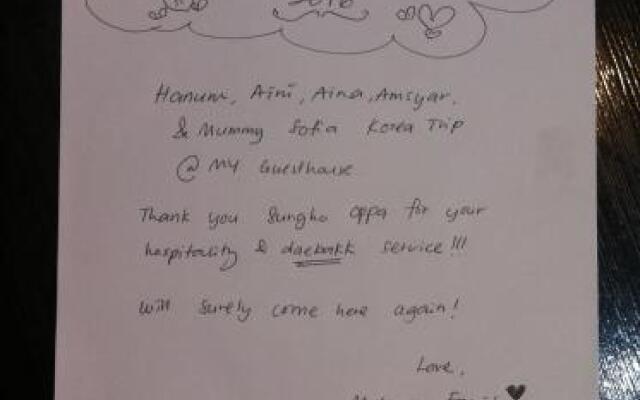 2016
Hanum, Aini, Aina, Amsyar,
& Mummy Sofia Korea Trip
@ MY Guesthouse
Thank you Sungho oppa for your
hospitality & daebakk service!!!
Will surely come here again!
Love,